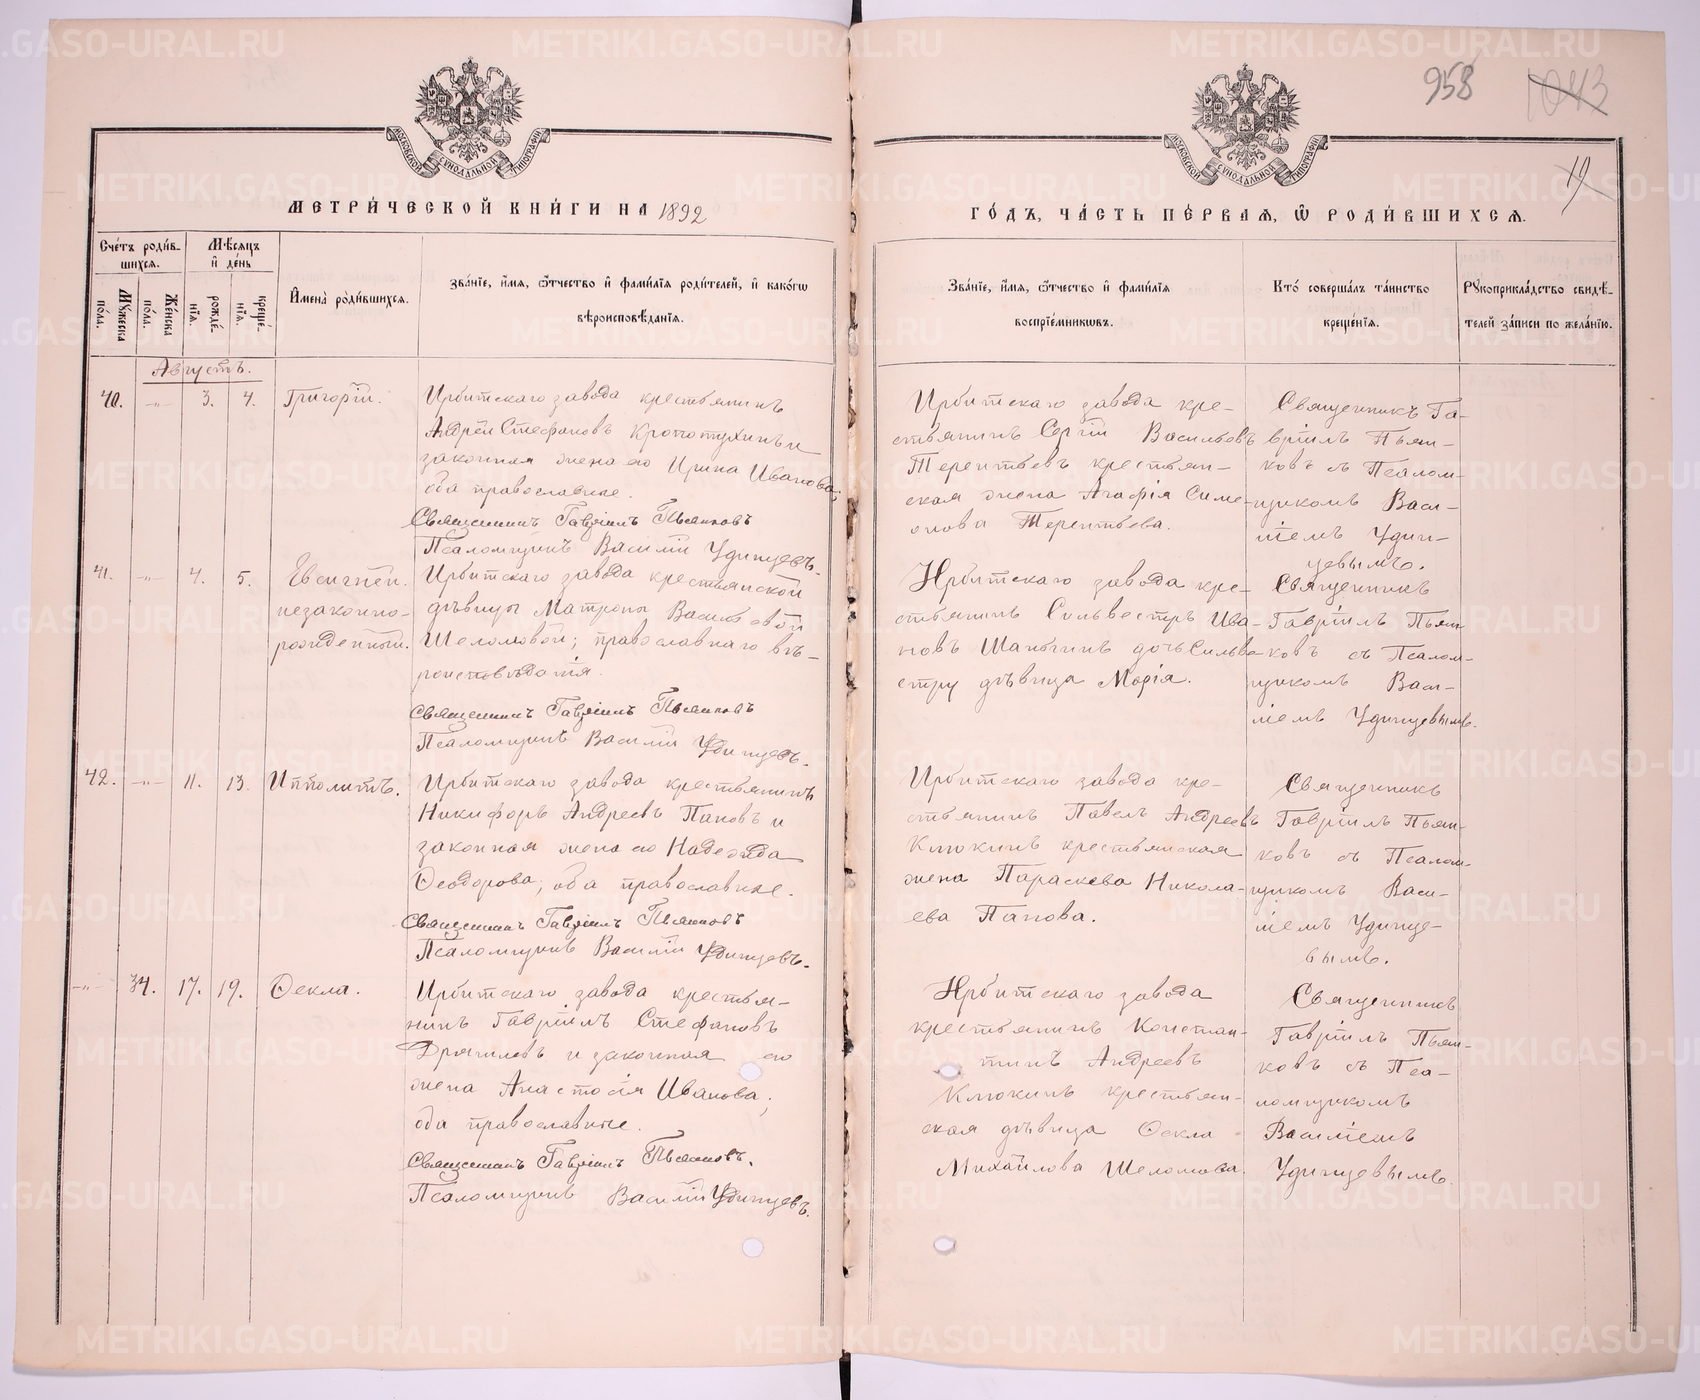 958 1043
19
МОСКОВСКОЙ СѴНОДАЛЬНОЙ ТИПОГРАФІИ
МОСКОВСКОЙ СѴНОДАЛЬНОЙ ТИПОГРАФІИ
МЕТРИ́ЧЕСКОЙ КНИ́ГИ НА 1892
ГО́ДЪ, ЧА́СТЬ ПЕ́РВАѦ, Ѡ҆ РОДИ́ВШИХСѦ.
Сче́тъ роди́в-
шихсѧ.
Мꙋжеска по́ла.
Же́нска по́ла.
Мѣ́сѧцъ
и҆ де́нь
рожде́-
нїѧ.
креще́-
нїѧ.
И҆мена̀ роди́вшихсѧ.
Зва́нїе, и҆́мѧ, ѻ҆́тчество и҆ фами́лїѧ роди́телей, и҆ како́гѡ
вѣроисповѣ́данїѧ.
Зва́нїе, и҆́мѧ, ѻ҆́тчество и҆ фами́лїѧ
воспрїе́мникѡвъ.
Кто̀ соверша́лъ та́инство
креще́нїѧ.
Рꙋкоприкла́дство свидѣ́-
телей за́писи по жела́нїю.
Августъ.
40. -"- 3. 4. Григорій.
Ирбитскаго завода крестьянинъ
Андрей Стефановъ Кропотухинъ и
законная жена его Ирина Иванова;
оба православные.
Священникъ Гавріилъ Пьянковъ
Псаломщикъ Василій Удинцевъ.
Ирбитскаго завода кре-
стьянинъ Сергій Васильевъ
Терентьевъ крестьян-
ская жена Агафія Симе-
онова Терентьева.
Священникъ Га-
вріилъ Пьян-
ковъ съ Псалом-
щикомъ Васи-
ліемъ Удин-
цевымъ.
41. -"- 4. 5. Евсигній.
незаконно-
рожденный.
Ирбитскаго завода крестьянской
дѣвицы Матроны Васильевой
Шеломовой; православнаго вѣ-
роисповѣданія.
Священникъ Гавріилъ Пьянковъ
Псаломщикъ Василій Удинцевъ.
Ирбитскаго завода кре-
стьянинъ Сильвестръ Ива-
новъ Шаньгинъ дочь Сильве
стру дѣвица Марія.
Священникъ
Гавріилъ Пьян
ковъ съ Псалом-
щикомъ Васи-
ліемъ Удинцевымъ.
42. -"- 11. 13. Ипполитъ.
Ирбитскаго завода крестьянинъ
Никифоръ Андреевъ Пановъ и
законная жена его Надежда
Ѳеодорова, оба православные.
Священникъ Гавріилъ Пьянковъ
Псаломщикъ Василій Удинцевъ.
Ирбитскаго завода кре-
стьянинъ Павелъ Андреевъ
Клюкинъ крестьянская
жена Параскева Никола-
ева Панова.
Священникъ
Гавріилъ Пьян-
ковъ съ Псалом-
щикомъ Васи-
ліемъ Удинце-
вымъ.
-"- 34. 17. 19. Ѳекла.
Ирбитскаго завода крестья-
нинъ Гавріилъ Стефановъ
Драчилевъ и законная его
жена Анастасія Иванова;
оба православные.
Священникъ Гавріилъ Пьянковъ.
Псаломщикъ Василій Удинцевъ.
Ирбитскаго завода
крестьянинъ Констан-
тинъ Андреевъ
Клюкинъ крестьян-
ская дѣвица Ѳекла
Михайлова Шеломова.
Священникъ
Гавріилъ Пьян-
ковъ съ Пса-
ломщикомъ
Василіемъ
Удинцевымъ.